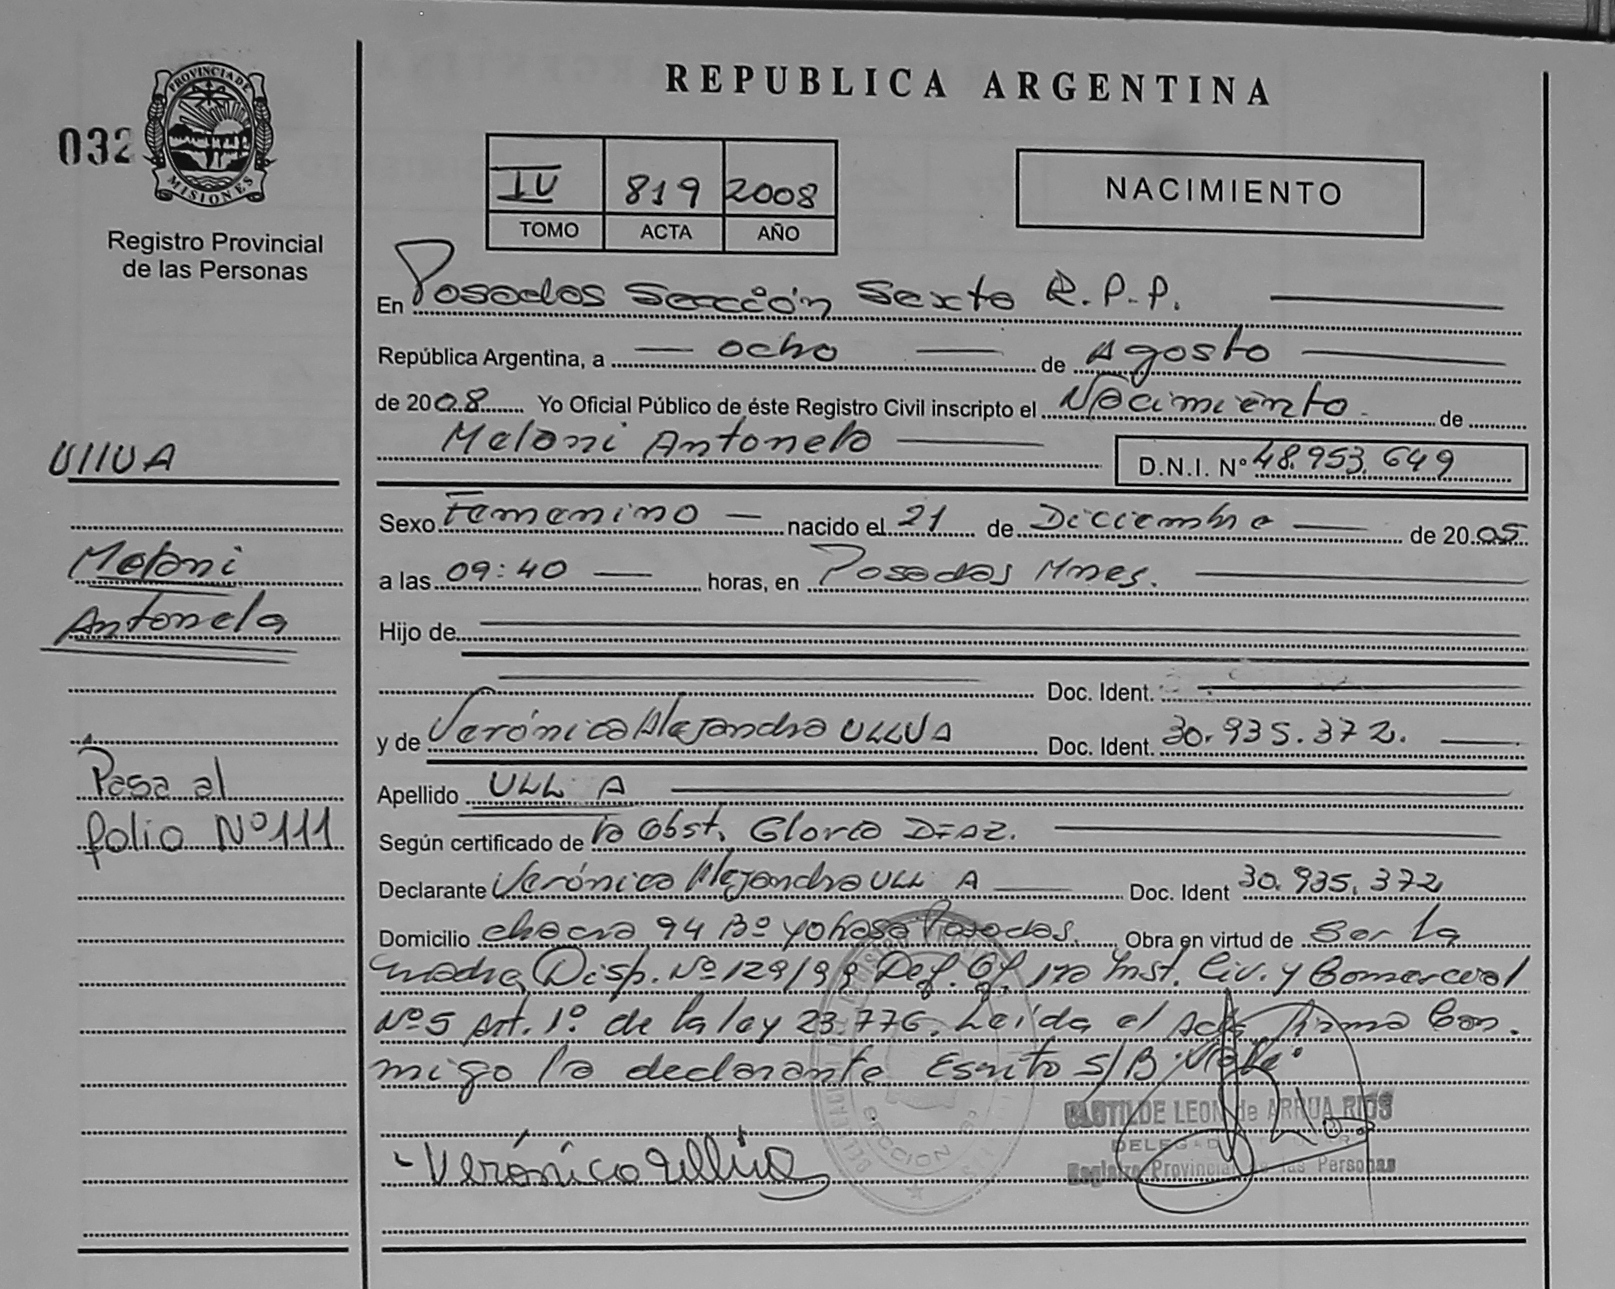 REPUBLICA ARGENTINA
032
PROVINCIA DE
MISIONES
Registro Provincial
de las Personas
IV 819 2008
TOMO ACTA AÑO
NACIMIENTO
En Posadas Sección Sexta R.P.P.
República Argentina, a ocho de Agosto
de 2008 Yo Oficial Público de éste Registro Civil inscripto el Nacimiento de
Melani Antonela
D.N.I. Nº 48.953.649
Sexo Femenino nacido el 21 de Diciembre de 2005
a las 09:40 horas, en Posadas Mnes.
Hijo de
Doc. Ident.
y de Verónica Alejandra ULLUA Doc. Ident. 30.935.372.
Apellido ULL A
Según certificado de la Obst. Gloria DIAZ.
Declarante Verónica Alejandra ULL A Doc. Ident 30.935.372
Domicilio chacra 94 Bº Yohasa Posadas. Obra en virtud de ser la
madre Disp. Nº 129/99 Def. Of. 1ra Inst. Civ. y Comercial
Nº5 Art. 1º de la ley 23.776. Leída el Acta firma Con.
migo la declarante Escrito S/B Vale.
Verónica Ullua
CLOTILDE LEON de ARRUA RIOS
Registro Provincial de las Personas
SECCION
UllUA
Melani
Antonela
Pasa al
folio Nº 111